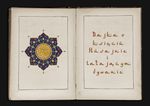 Bajka o
księciu
Hasanie
i
latającym
dywanie